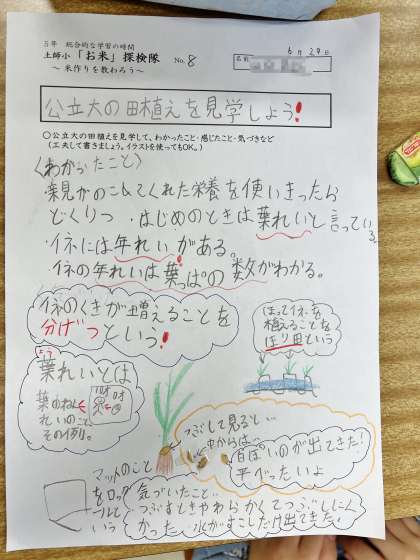 5年 総合的な学習の時間
土師小「お米」探検隊 No.8
～米作りを教わろう～
6月29日
名前
公立大の田植えを見学しよう!
○公立大の田植えを見学して、わかったこと・感じたこと・気づきなど
(工夫して書きましょう。イラストを使ってもOK。)
〈わかったこと〉
・親がのこしてくれた栄養を使いきったら
どくりつ ・はじめのときは葉れいと言っている。
・イネには年れいがある。
・イネの年れいは葉っぱの数がわかる。
イネのくきが増えることを
分げつという!
はってイネを
植えることを
はり田という
よう
葉れいとは
葉のねん
れいのこと。
その例。
10才
0才
つぶして見ると…
中からは
白ぽいのが出てきた!
平べったいよ
マットのこと
をロッグ
ールと
いう
気づいたこと…
つぶすときやわらかくてつぶしにく
かった。水がすこしだけ出てきた!